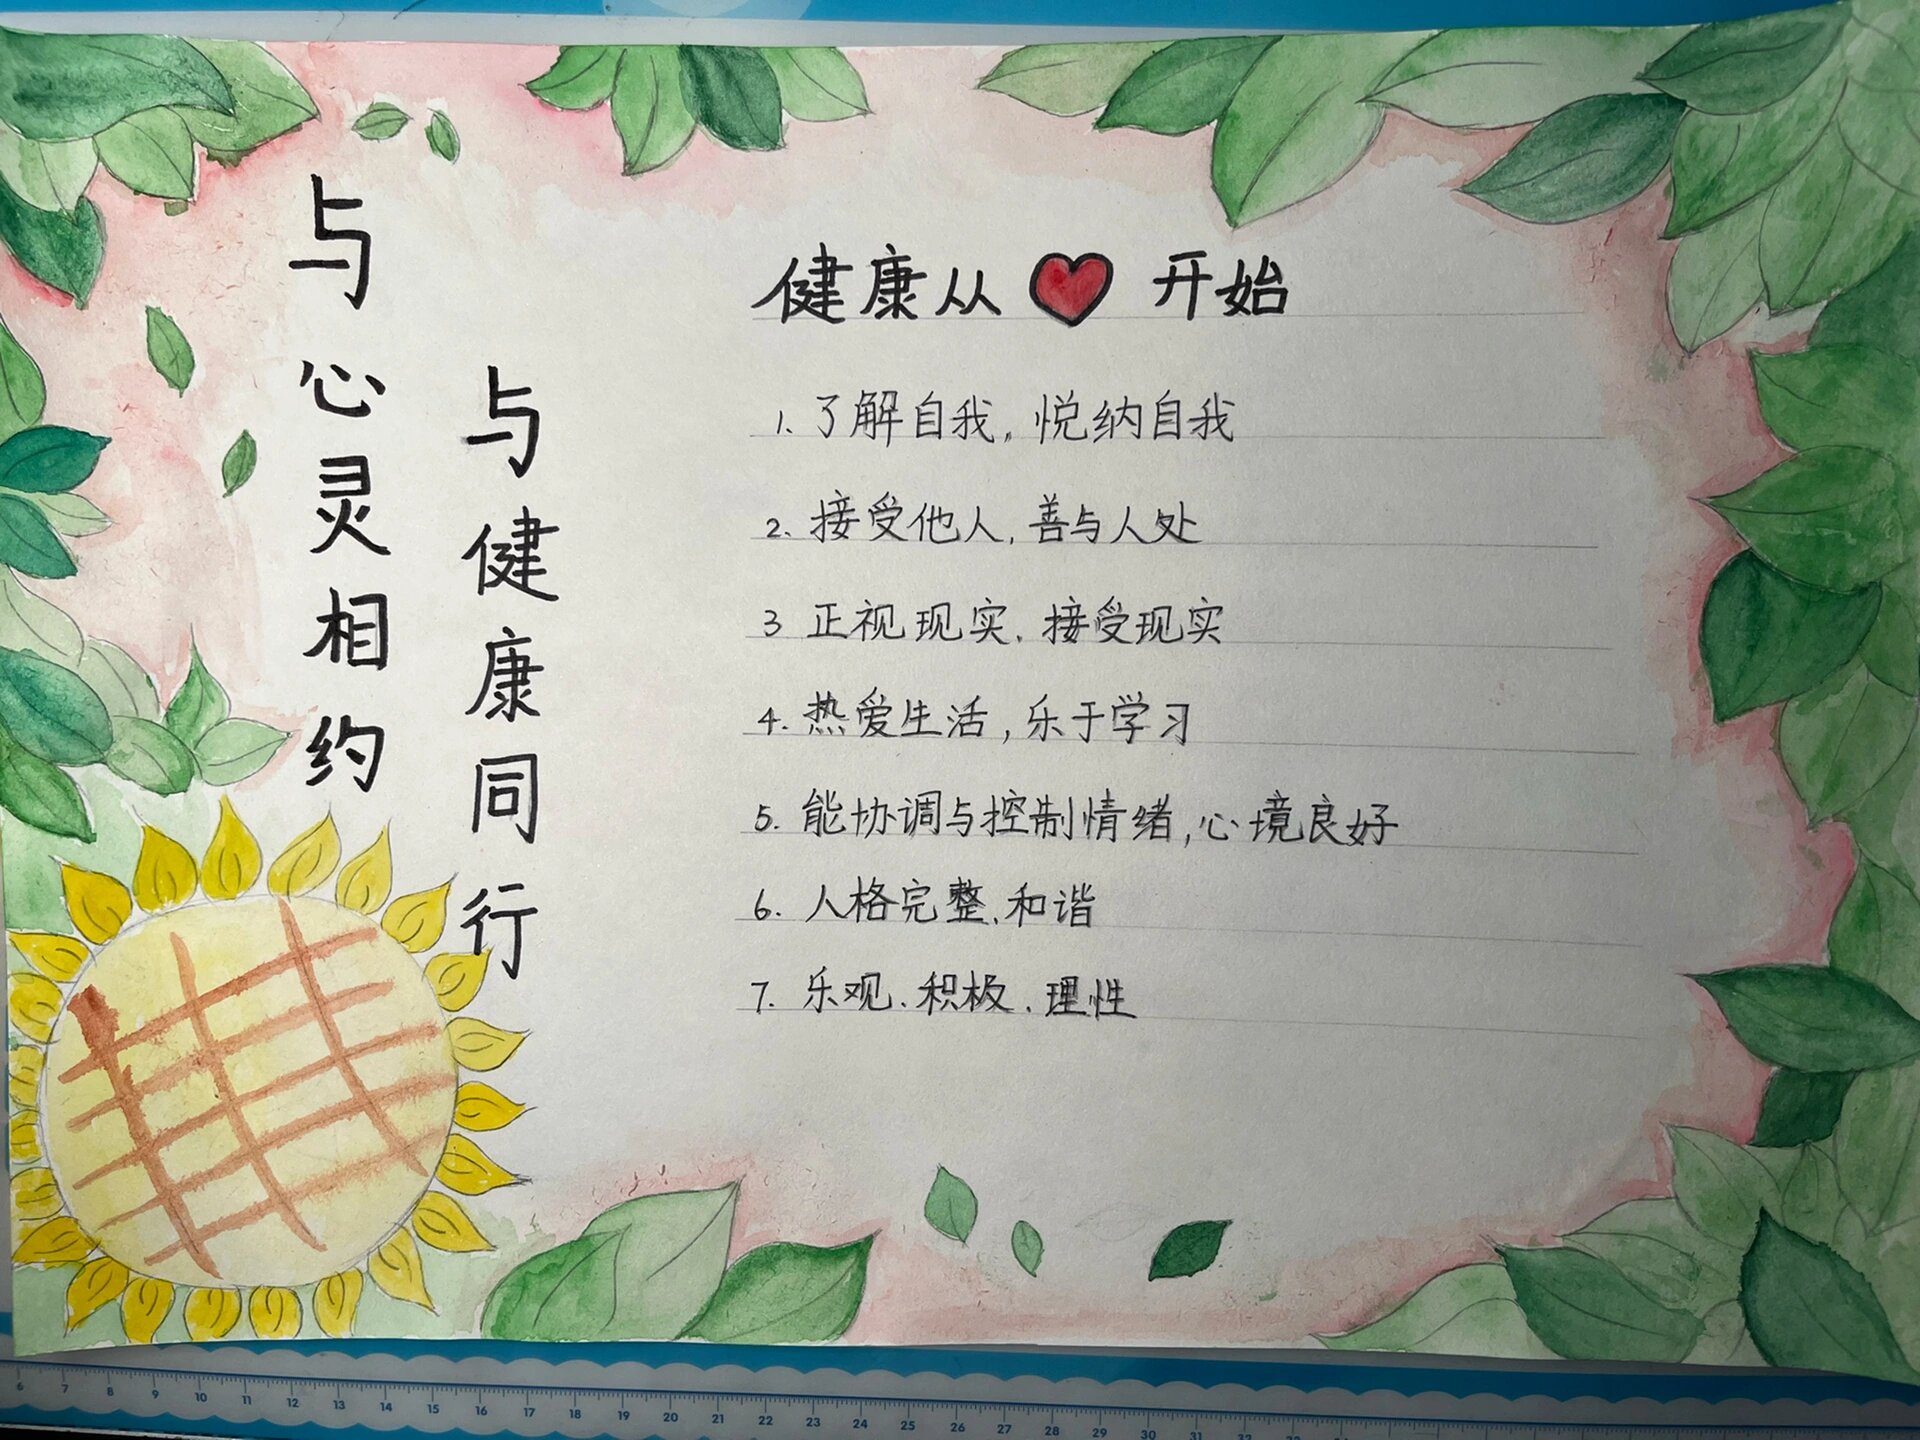 与心灵相约
与健康同行
健康从❤开始
1. 了解自我，悦纳自我
2. 接受他人，善与人处
3 正视现实．接受现实
4. 热爱生活，乐于学习
5. 能协调与控制情绪，心境良好
6. 人格完整．和谐
7. 乐观．积极．理性
6 7 8 9 10 11 12 13 14 15 16 17 18 19 20 21 22 23 24 25 26 27 28 29 30 31 32